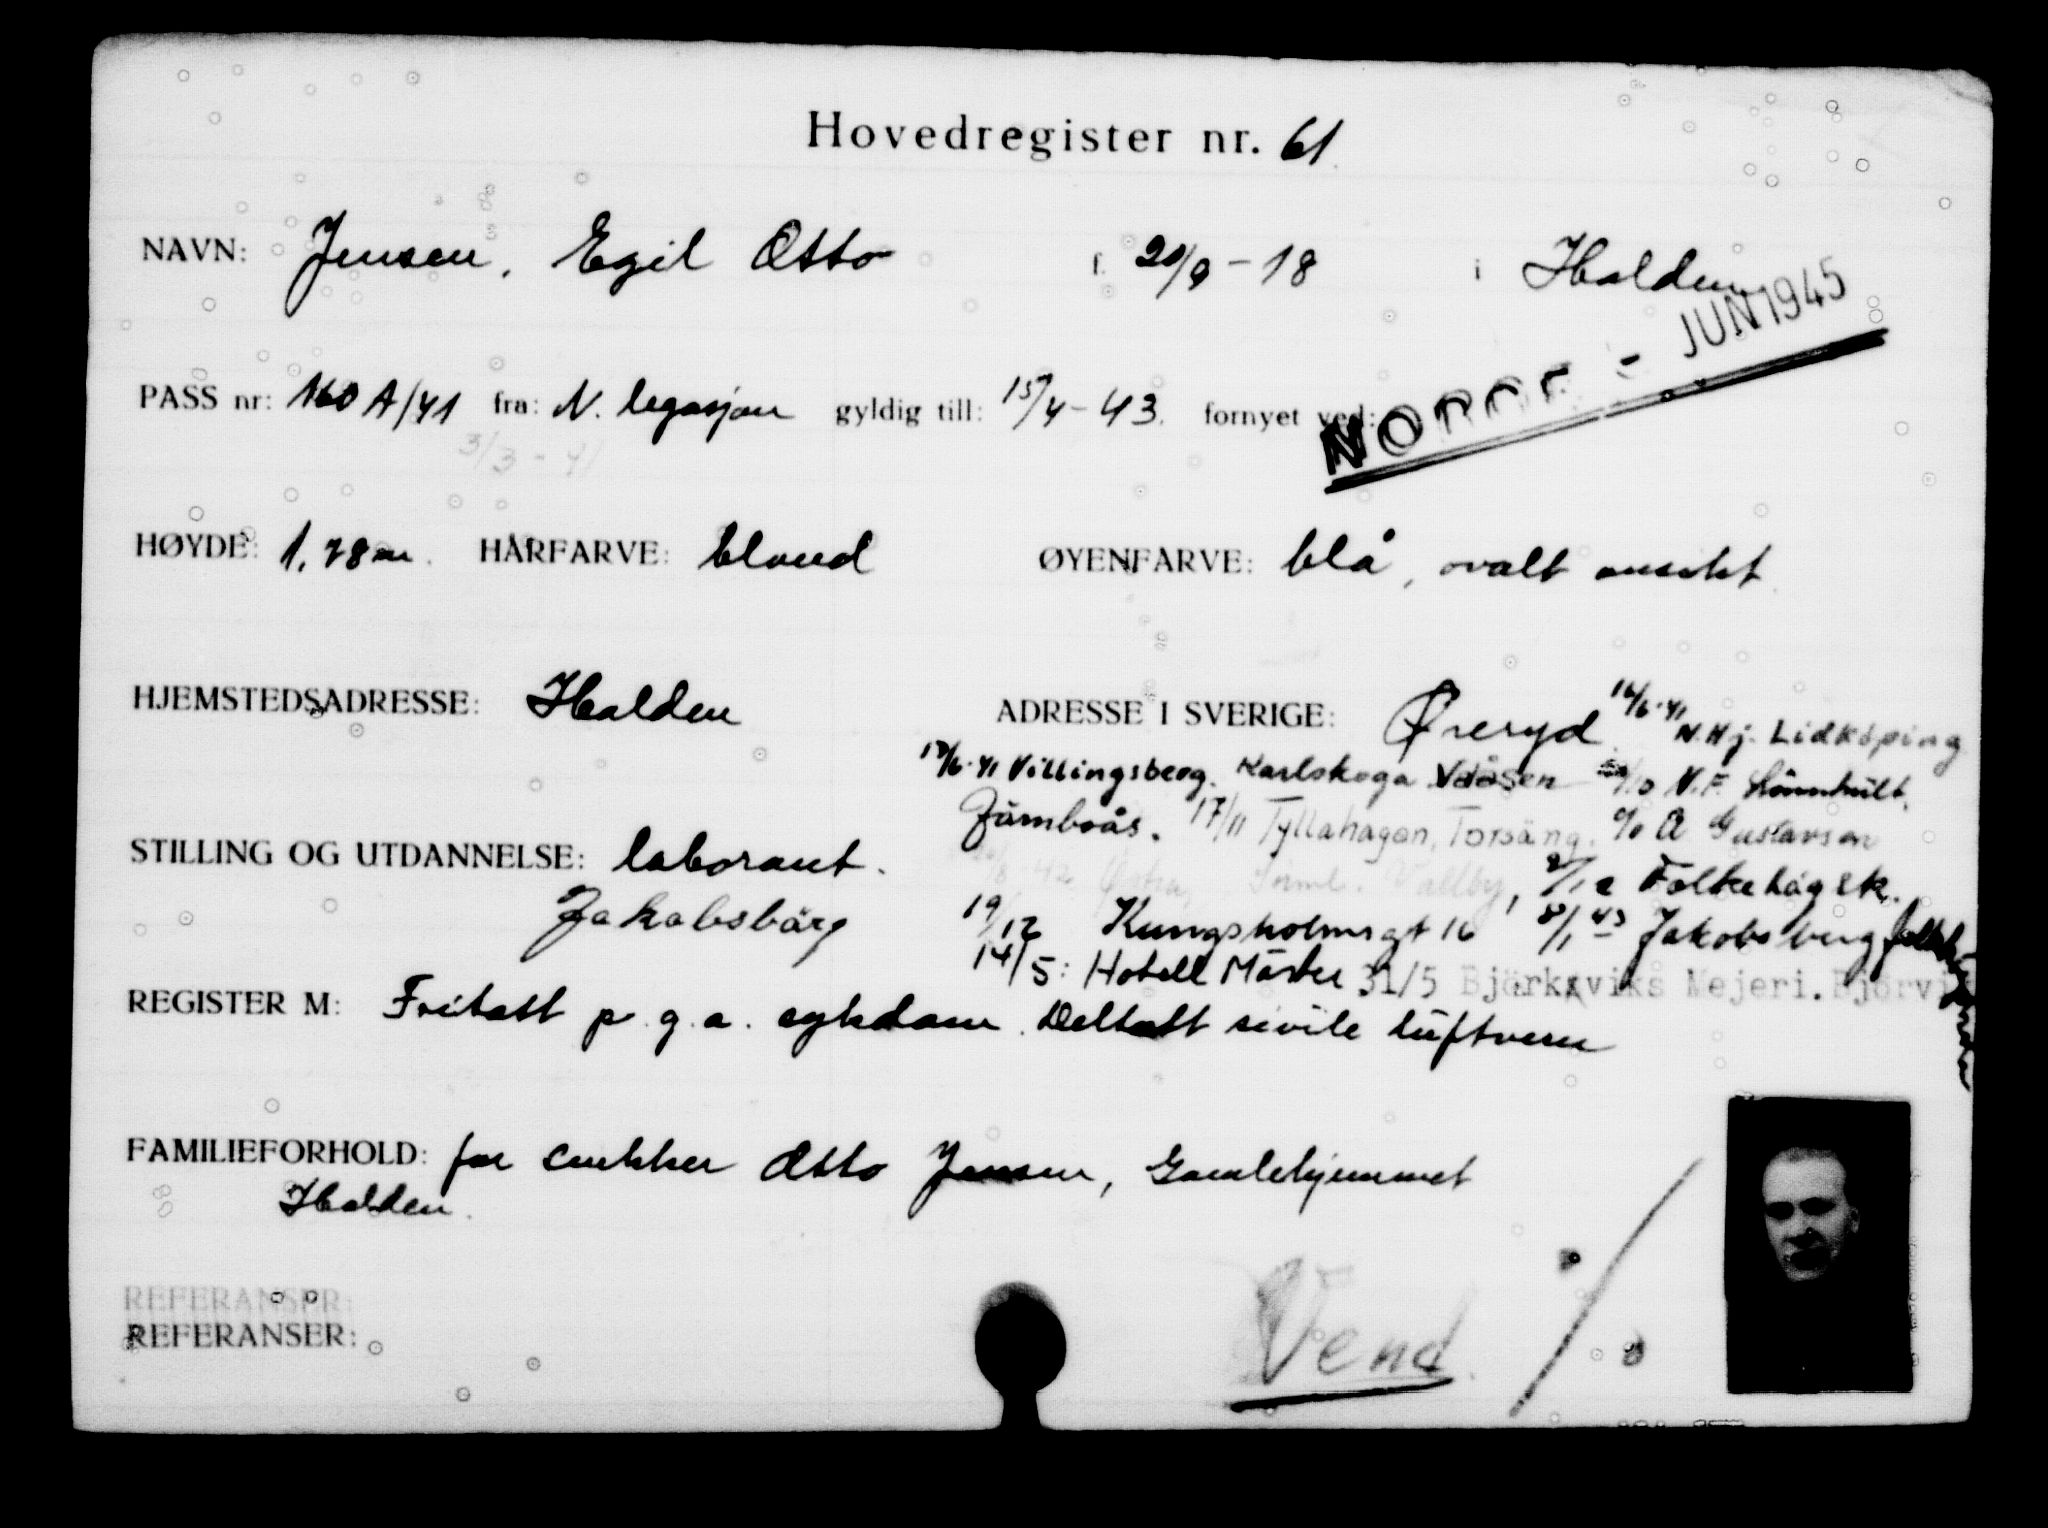 Hovedregister nr. 61
NAVN: Jensen, Egil Otto f. 20/9-18 i Halden
NORGE - JUN 1945
PASS nr: 160 A/41 fra: N. legasjon gyldig till: 15/4-43. fornyet ved:
3/3-41
HØYDE: 1,78 m. HÅRFARVE: blond ØYENFARVE: blå, ovalt ansikt
HJEMSTEDSADRESSE: Halden ADRESSE I SVERIGE: Øreryd 16/6-41 N.Hj. Lidköping
/6-41 Villingsberg. Karlskoga Vdåsen /10 V.F. Lönnhult,
Järnboås. 17/11 Tyllahagen, Torsång. c/o A Gustavson
STILLING OG UTDANNELSE: laborant.
42 Östra, Vallby, 2/12 Folkehögsk.
Jakobsbärg 19/12 Kungsholmsgt 16 8/1 43 Jakobsberg
14/5: Hotell Mäster 31/5 Björkxviks Mejeri. Björvi
REGISTER M: Fritatt p.g.a. sykdom. Deltatt sivile luftvern
FAMILIEFORHOLD: far snekker Otto Jensen, Gamlehjemmet
Halden.
REFERANSER:
REFERANSER:
Vend